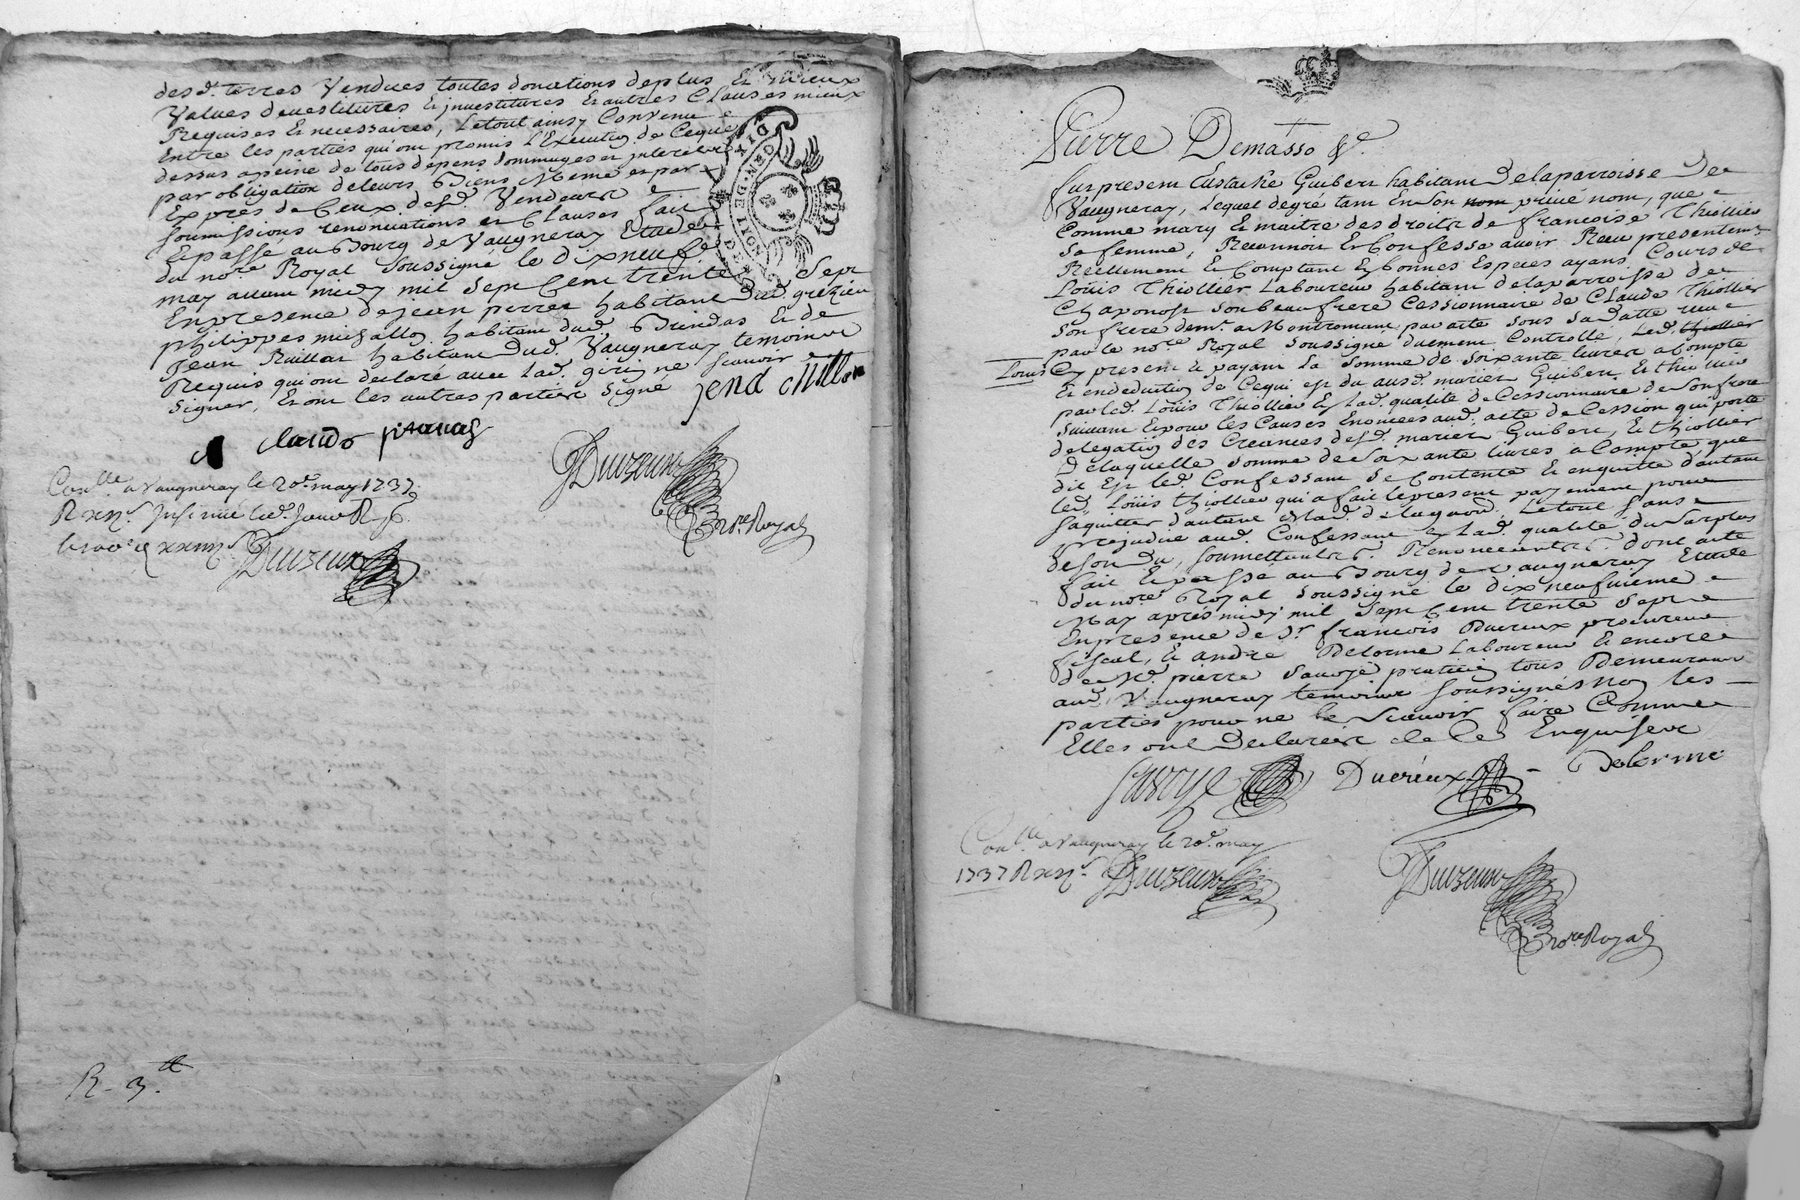 desd. terres Vendues toutes donations deplus Et mieux
Values devestitures Et jnvestitures Et autres Clauses mieux
Requises Et necessaires, Letout ainsy Convenu
Entre les parties qui ont promis l'Execution de Ceque
dessus apeine de tous depens dommages et interets
par obligation deleurs Biens Meme et par
Expres de Ceux desd. Vendeurs
soumissions renonciations et Clauses fait
Et passé au Bourg de Vaugneray Etude
du nore. Royal soussigné le dixneufe.
may avant midy mil sept Cent trente sept
En presence de jean pierre habitant dud. grezieu
philippes michallon habitant dud. Brindas Et de
jean Ruillat habitant dud. Vaugneray temoins
Requis qui ont declaré avec lad. giry ne scavoir
signer, Et ont les autres parties signé
claude
Conlle. a Vaugneray le 20e. may 1737.
Duizeux
nore Royal
Duizeux
R - 3.tt
GEN. DE LYON
Pierre Demasso &c.
fut present Eustache Guibert habitant delaparroisse de
Vaugneray, Lequel degré tant Enson nom privé nom, que
Comme mary Et maitre des droits de francoise Thiollier
sa femme, Reconnoit Et Confesse avoir Receu presentemt
Reellement Et Comptant En bonnes Especes ayant Cours de
Louis Thiollier Laboureur habitant delaparroisse de
Chaponost son beaufrere Cessionnaire de Claude Thiollier
son frere demt. a Montromant par acte sous sa datte receu
par le nore. Royal soussigné duement Controllé, Led. thiollier
Louis Cy present Et payant La somme de soixante livres a Compte
Et endeduction de Cequi est du ausd. mariez Guibert Et thiollier
par led. Louis Thiollier En lad. qualité de Cessionnaire de son frere
suivant Et pour les Causes Enoncées aud. acte de Cession qui porte
delegation des Creances desd. mariez Guibert, Et thiollier
delaquelle somme de soixante livres a Compte que
dit Est led. Confessant se Contente Et en quitte d'autant
led. Louis thiollier qui a fait le present payement pour
saquitter d'autant Letout sans
prejudice aud. Confessant En lad. qualité du surplus
de son du, soumettant &c. Renoncant &c. dont acte
fait Et passé au Bourg de Vaugneray Etude
du nore. Royal soussigné le dixneufvieme
May apres midy mil sept Cent trente sept
En presence de Sr. francois Ducreux procureur
fiscal, Et andré Delorme Laboureur Et encore
de Me. pierre Savoye praticien tous Demeurant
aud. Vaugneray temoins soussignés non les
parties pour ne le scavoir faire Comme
Elles ont declaré de Ce Enquises
Savoye Ducreux Delorme
Conlle. a Vaugneray le 20e. may
1737 Duizeux
Duizeux
nore Royal